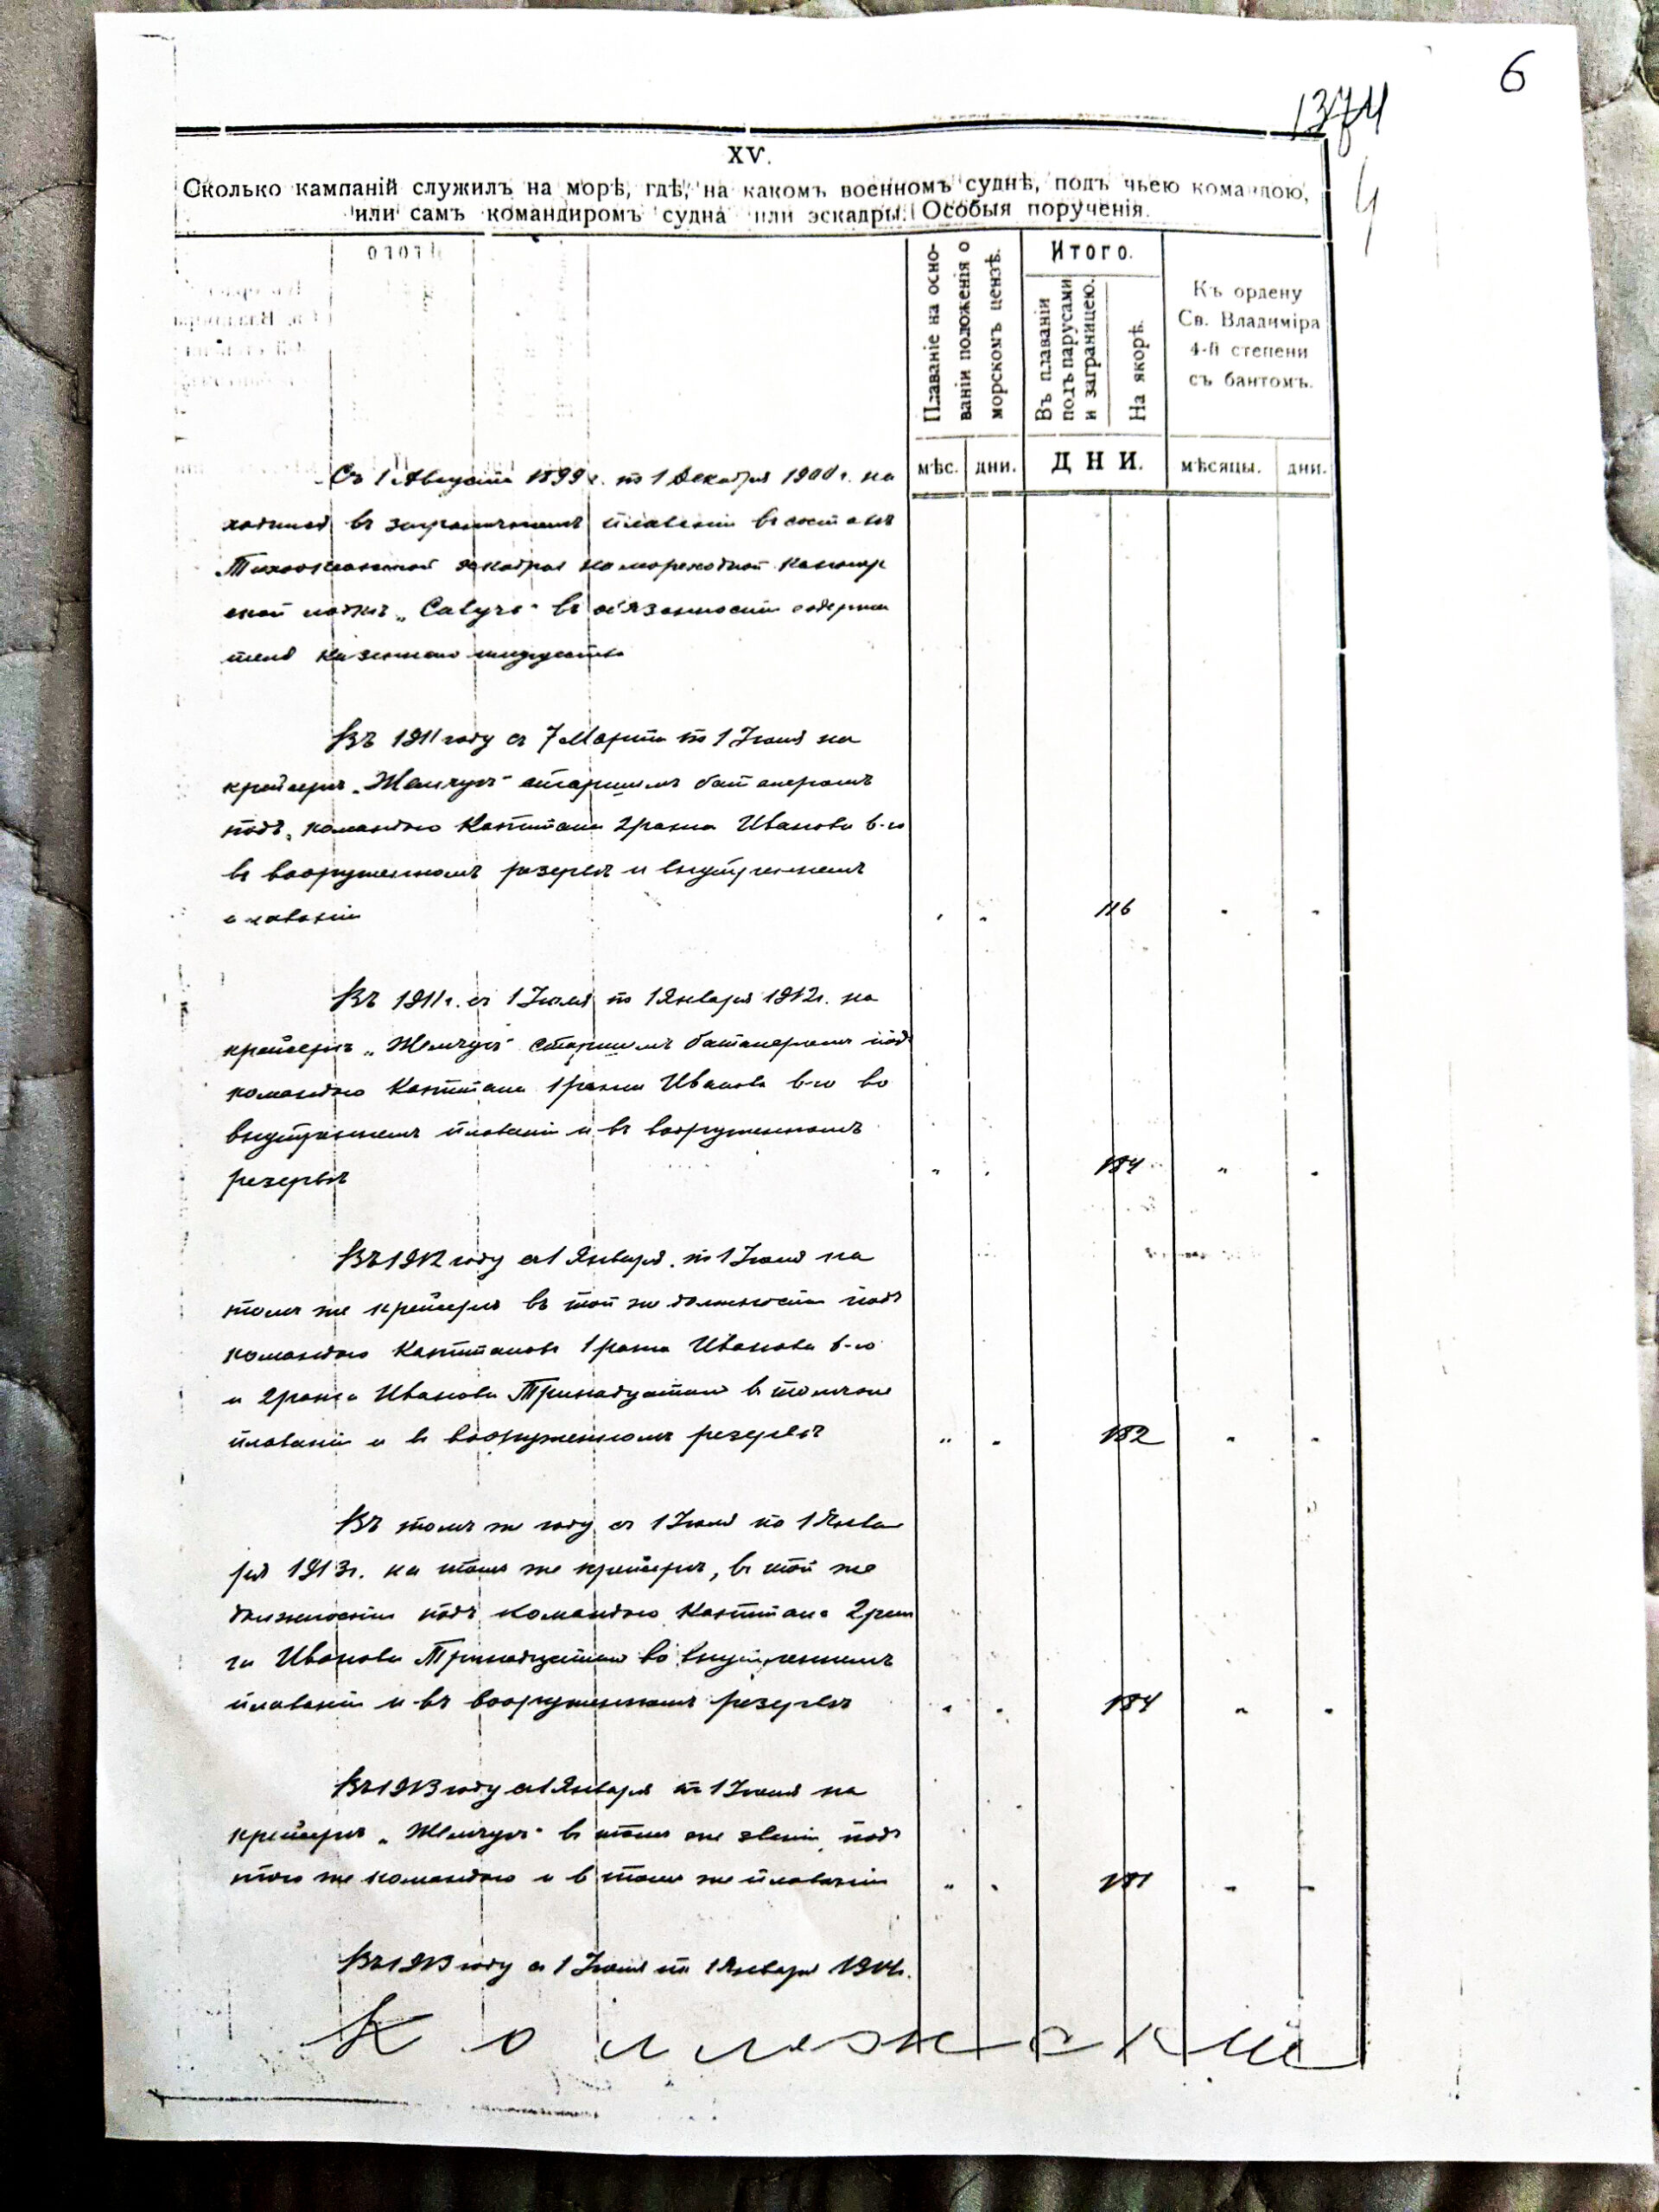 6
1374
4
XV.
Сколько кампаній служилъ на морѣ, гдѣ, на какомъ военномъ суднѣ, подъ чьею командою,
или самъ командиромъ судна или эскадры. Особыя порученія.
Плаваніе на осно-
ваніи положенія о
морскомъ цензѣ.
Итого.
Въ плаваніи
подъ парусами
и заграницею.
На якорѣ.
Къ ордену
Св. Владиміра
4-й степени
съ бантомъ.
мѣс. дни. ДНИ. мѣсяцы. дни.
Съ 1 Августа 1899 г. по 1 Декабря 1900 г. на
ходился въ заграничномъ плаваніи въ составѣ
Тихоокеанской эскадры на мореходной канонер
ской лодкѣ „Сивучъ" въ обязанности содержа
теля казеннаго имущества
Въ 1911 году съ 7 Марта по 1 Іюля на
крейсерѣ „Жемчугъ" старшимъ баталеромъ
подъ командою Капитана 2 ранга Иванова 6-го
въ вооруженномъ резервѣ и внутреннемъ
плаваніи " " 116 " "
Въ 1911 г. съ 1 Іюля по 1 Января 1912 г. на
крейсерѣ „Жемчугъ" старшимъ баталеромъ подъ
командою Капитана 1 ранга Иванова 6-го во
внутреннемъ плаваніи и въ вооруженномъ
резервѣ " " 184 " "
Въ 1912 году съ 1 Января по 1 Іюля на
томъ же крейсерѣ въ той же должности подъ
командою Капитановъ 1 ранга Иванова 6-го
и 2 ранга Иванова Тринадцатаго въ томъ же
плаваніи и въ вооруженномъ резервѣ " " 182 " "
Въ томъ же году съ 1 Іюля по 1 Янва
ря 1913 г. на томъ же крейсерѣ, въ той же
должности подъ командою Капитана 2 ран
га Иванова Тринадцатаго во внутреннемъ
плаваніи и въ вооруженномъ резервѣ " " 184 " "
Въ 1913 году съ 1 Января по 1 Іюля на
крейсерѣ „Жемчугъ" въ томъ же званіи подъ
тою же командою и въ томъ же плаваніи " " 181 " "
Въ 1913 году съ 1 Іюля по 1 Января 1914 г.